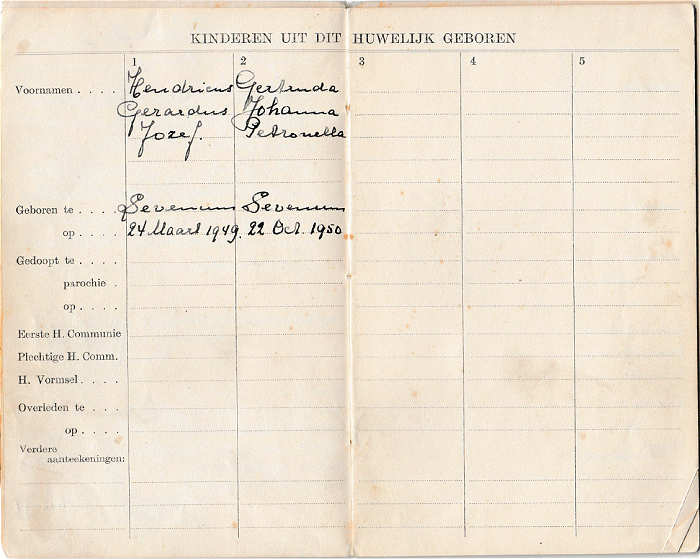 KINDEREN UIT DIT HUWELIJK GEBOREN
1 2 3 4 5
Voornamen . . . . Hendricus Gertruda
Gerardus Johanna
Jozef. Petronella
Geboren te . . . . Sevenum Sevenum
op . . . . 24 Maart 1949. 22 Oct. 1950
Gedoopt te . . . .
parochie .
op . . . .
Eerste H. Communie
Plechtige H. Comm.
H. Vormsel . . . .
Overleden te . . .
op . . . .
Verdere
aanteekeningen: